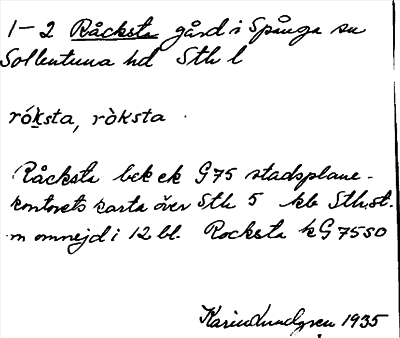 1-2 Råcksta gård i Spånga sn
Sollentuna hd Sth l
rók̲sta, ròksta
Råcksta bek ek G75 stadsplane-
kontorets karta över Sth 5 kb Sth.st.
m omnejd i 12 bl. Rocksta kG 75 SO
Karin Lundgren 1935